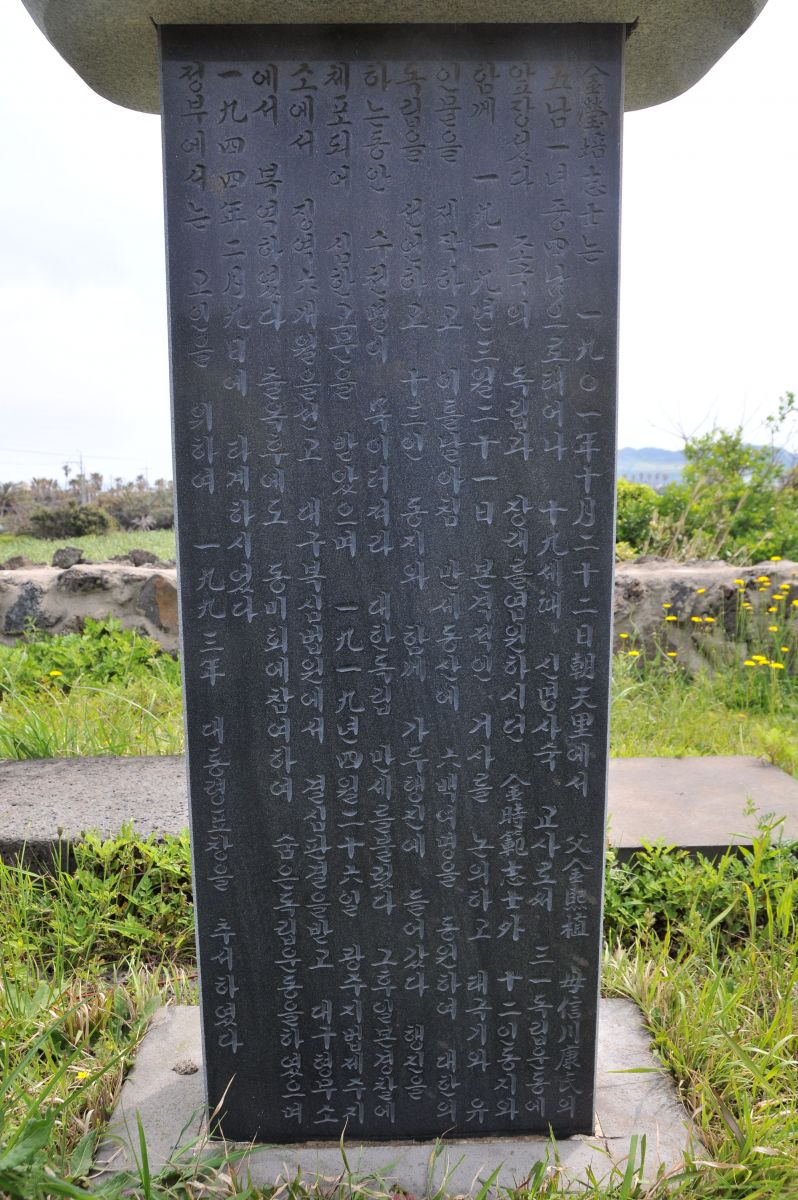 金瑩培志士는 一九〇一年十月二十二日朝天里에서 父金熙植 母信川康氏의
五남一녀중四남으로태어나 十九세때 신명사숙 교사로써 三一독립운동에
앞장섰다 조국의 독립과 장래를염원하시던 金時範志士와 十二인동지와
함께 一九一九년三월二十一日 본격적인 거사를 논의하고 태극기와 유
인물을 제작하고 이틀날아침 만세동산에 六백여명을 동원하여 대한의
독립을 선언하고 十三인 동지와 함께 가두행진에 들어갔다 행진을
하는동안 수천명이 목이터져라 대한독립 만세를불렀다 그후일본경찰에
체포되어 심한고문을 받았으며 一九一九년四월二十六일 광주지법제주지
소에서 징역六개월을선고 대구복심법원에서 결심판결을받고 대구형무소
에서 복역하였다 출옥후에도 동미회에참여하여 숨은독립운동을하였으며
一九四四年二月九日에 타계하시었다
정부에서는 고인을 위하여 一九九三年 대통령표창을 추서하였다